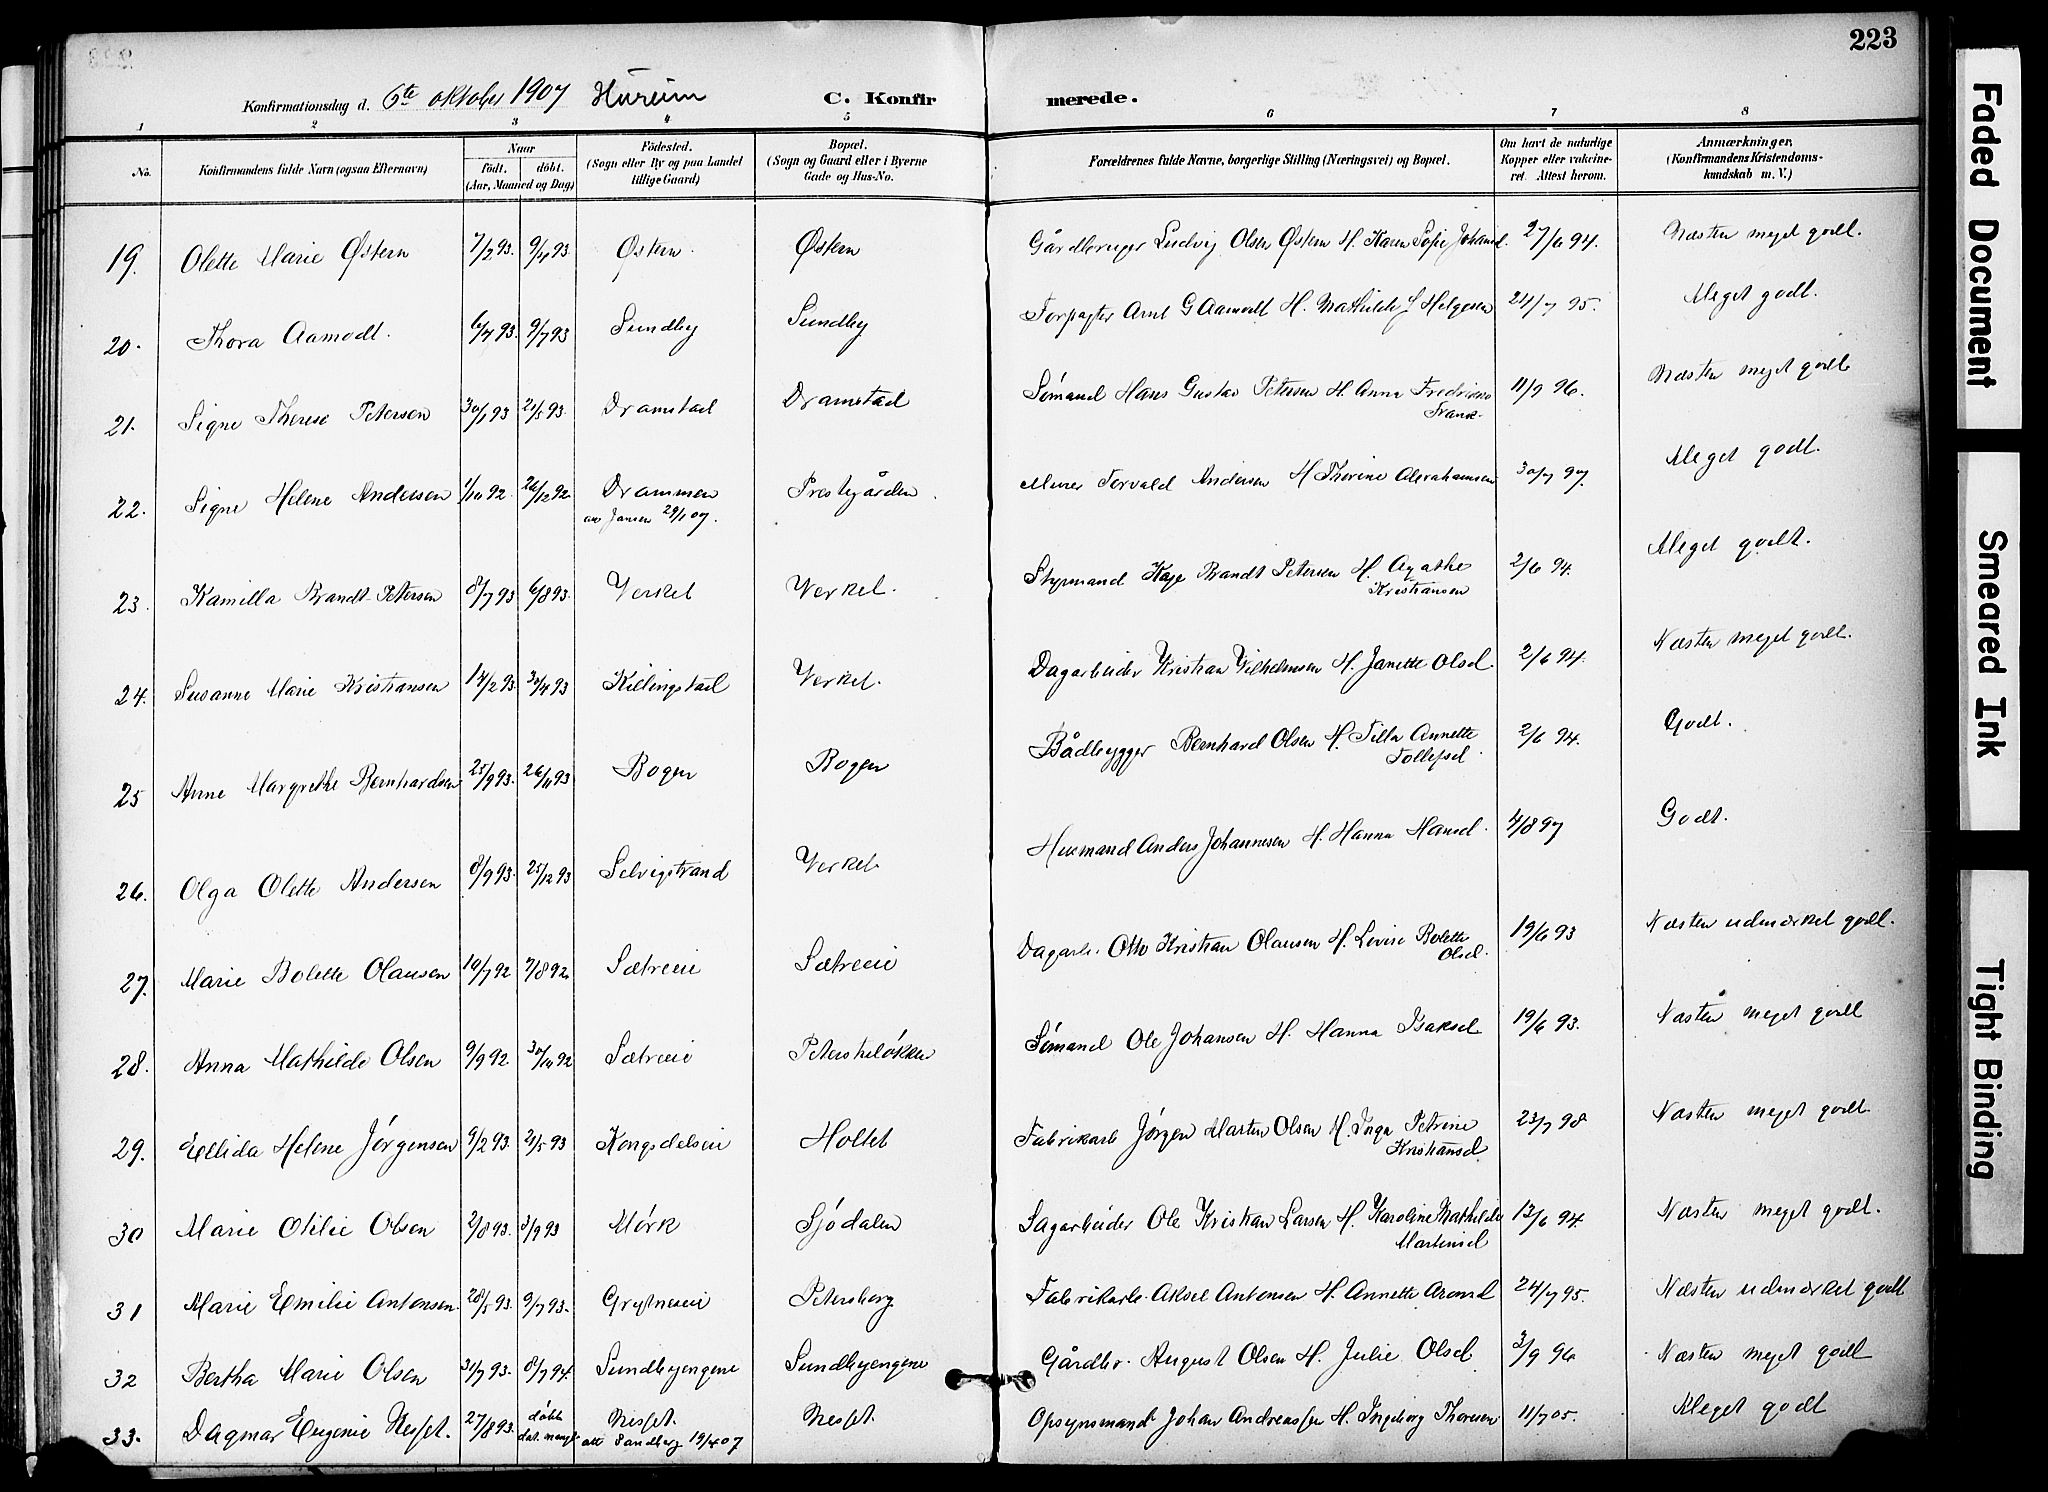 223
Konfirmationsdag d. 6te oktober 1907 Hurum C. Konfirmerede.
1 2 3 4 5 6 7 8
No. Konfirmandens fulde Navn (ogsaa Efternavn) Naar födt. döbt. (Aar, Maaned og Dag) Födested. (Sogn eller By og paa Landet tillige Gaard) Bopæl. (Sogn og Gaard eller i Byerne Gade og Hus-No. Forældrenes fulde Navne, borgerlige Stilling (Næringsvei) og Bopæl. Om havt de naturlige Kopper eller vakcineret. Attest herom. Anmærkninger, (Konfirmandens Kristendomskundskab m. V.)
19. Olette Marie Østern 7/2 93. 9/4 93 Østern. Østern Gårdbruger Ludvig Olsen Østern H. Karen Sofie Johansd. 27/6 94. Næsten meget godt.
20. Thora Aamodt. 6/4 93. 9/7 93 Sundby Sundby Forpagter Arnt G Aamodt H. Mathilde J Helgesen 24/7 95. Meget godt.
21. Signe Therese Petersen 30/1 93 21/5 93. Dramstad Dramstad Sømand Hans Gustav Petersen H. Anna Fredrikke Frank. 11/9 96. Næsten meget godt
22. Signe Helene Andersen 1/10 92. 26/12 92. Drammen Prestegården Murer Torvald Andersen H Thorine Abrahamsen 30/7 97. Meget godt.
att Jansen 29/1 07.
23. Kamilla Brandt-Petersen 8/7 93 6/8 93. Verket Verket. Styrmand Kaje Brandt Petersen H. Agathe Kristiansen 2/6 94. Meget godt.
24. Susanne Marie Kristiansen 14/2 93. 30/4 93 Killingstad Verket. Dagarbeider Kristian Vilhelmsen H. Janette Olsd. 2/6 94. Næsten meget godt.
25 Anne Margrethe Bernhardsen 25/9 93. 26/11 93 Bogen Bogen Bådbygger Bernhard Olsen H. Tilla Annette Tollefsd. 2/6 94. Godt.
26. Olga Olette Andersen 8/9 93. 25/12 93 Selvigstrand Verket Husmand Anders Johannesen H. Hanna Hansd. 4/8 97 Godt.
27. Marie Bolette Olausen 10/7 92 7/8 92. Sætreeie Sætreeie Dagarb. Otto Kristian Olausen H. Lovise Bolette Olsd. 19/6 93 Næsten udmærket godt.
28. Anna Mathilde Olsen 9/9 92. 30/10 92 Sætreeie Petersheløkken Sømand Ole Johansen H. Hanna Isaksd. 19/6 93. Næsten meget godt
29. Ellida Helene Jørgensen 9/2 93. 21/5 93 Kongsdelseie Holtet Fabrikarb Jørgen Martin Olsen H. Inga Petrine Kristiansd 23/7 98 Næsten meget godt.
30 Marie Otilie Olsen 2/8 93. 3/9 93 Mørk Sjødalen Sagarbeider Ole Kristian Larsen H. Karoline Mathilde Martinsd 13/6 94. Næsten meget godt.
31 Marie Emilie Antonsen 28/5 93. 9/7 93. Grytneseie Petersborg Fabrikarb. Aksel Antonsen H. Annette Aronsd 24/7 95. Næsten udmærket godt
32 Bertha Marie Olsen 31/7 93. 8/7 94. Sundbyengene Sundbyengene Gårdbr. August Olsen H. Julie Olsd 3/9 96 Næsten meget godt
33. Dagmar Eugenie Nesset. 27/8 93. døbt dat. mangl Nesset. Nesset. Opsynsmand Johan Andreassen H. Ingeborg Thoresen 11/7 05. Meget godt
att Sandberg 19/4 07
Faded Document
Smeared Ink
Tight Binding